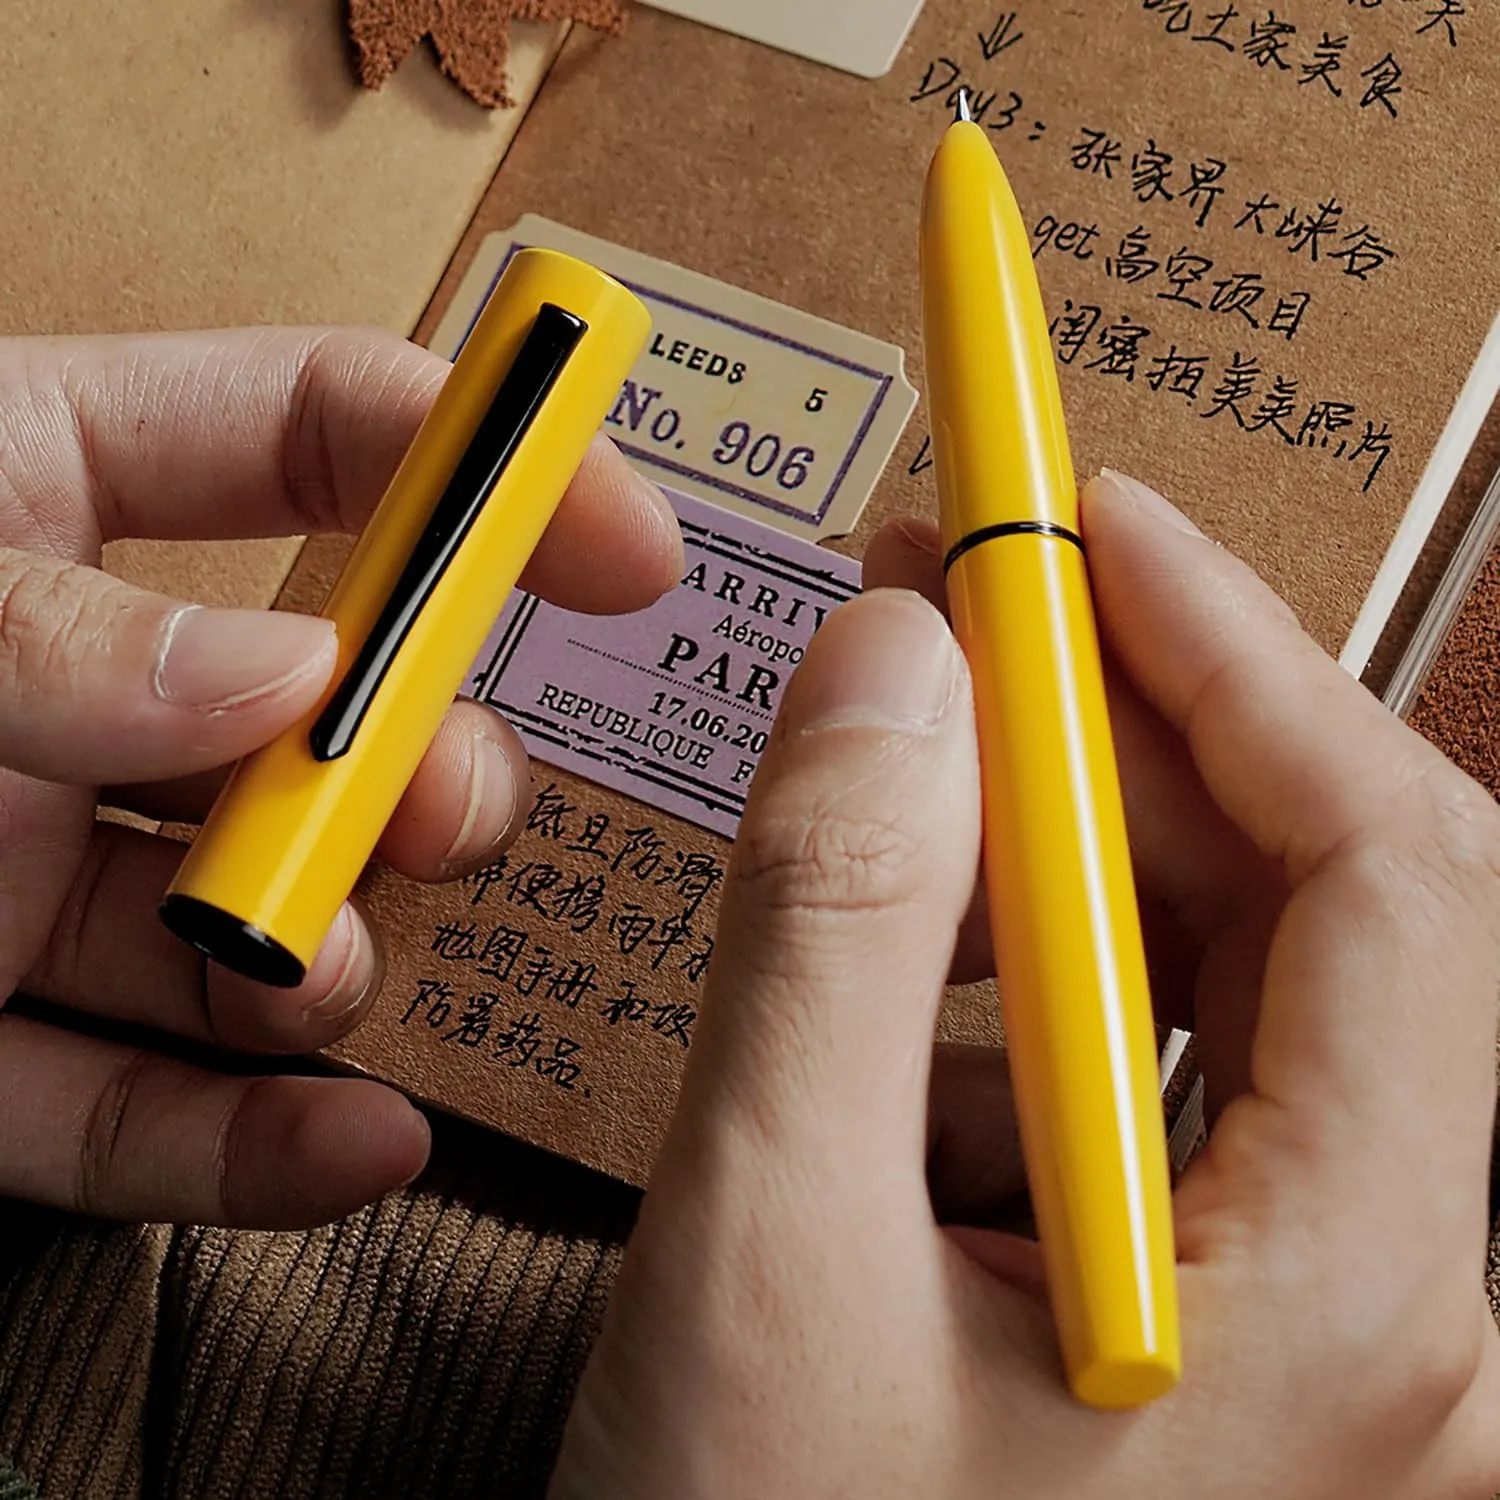 吃土家美食
Day3：张家界大峡谷
get高空项目
闺蜜拍美美照片
LEEDS 5
No. 906
ARRIV
Aéropo
PAR
17.06.20
REPUBLIQUE F
纸且防潮
便携雨伞
地图手册和
防暑药品.